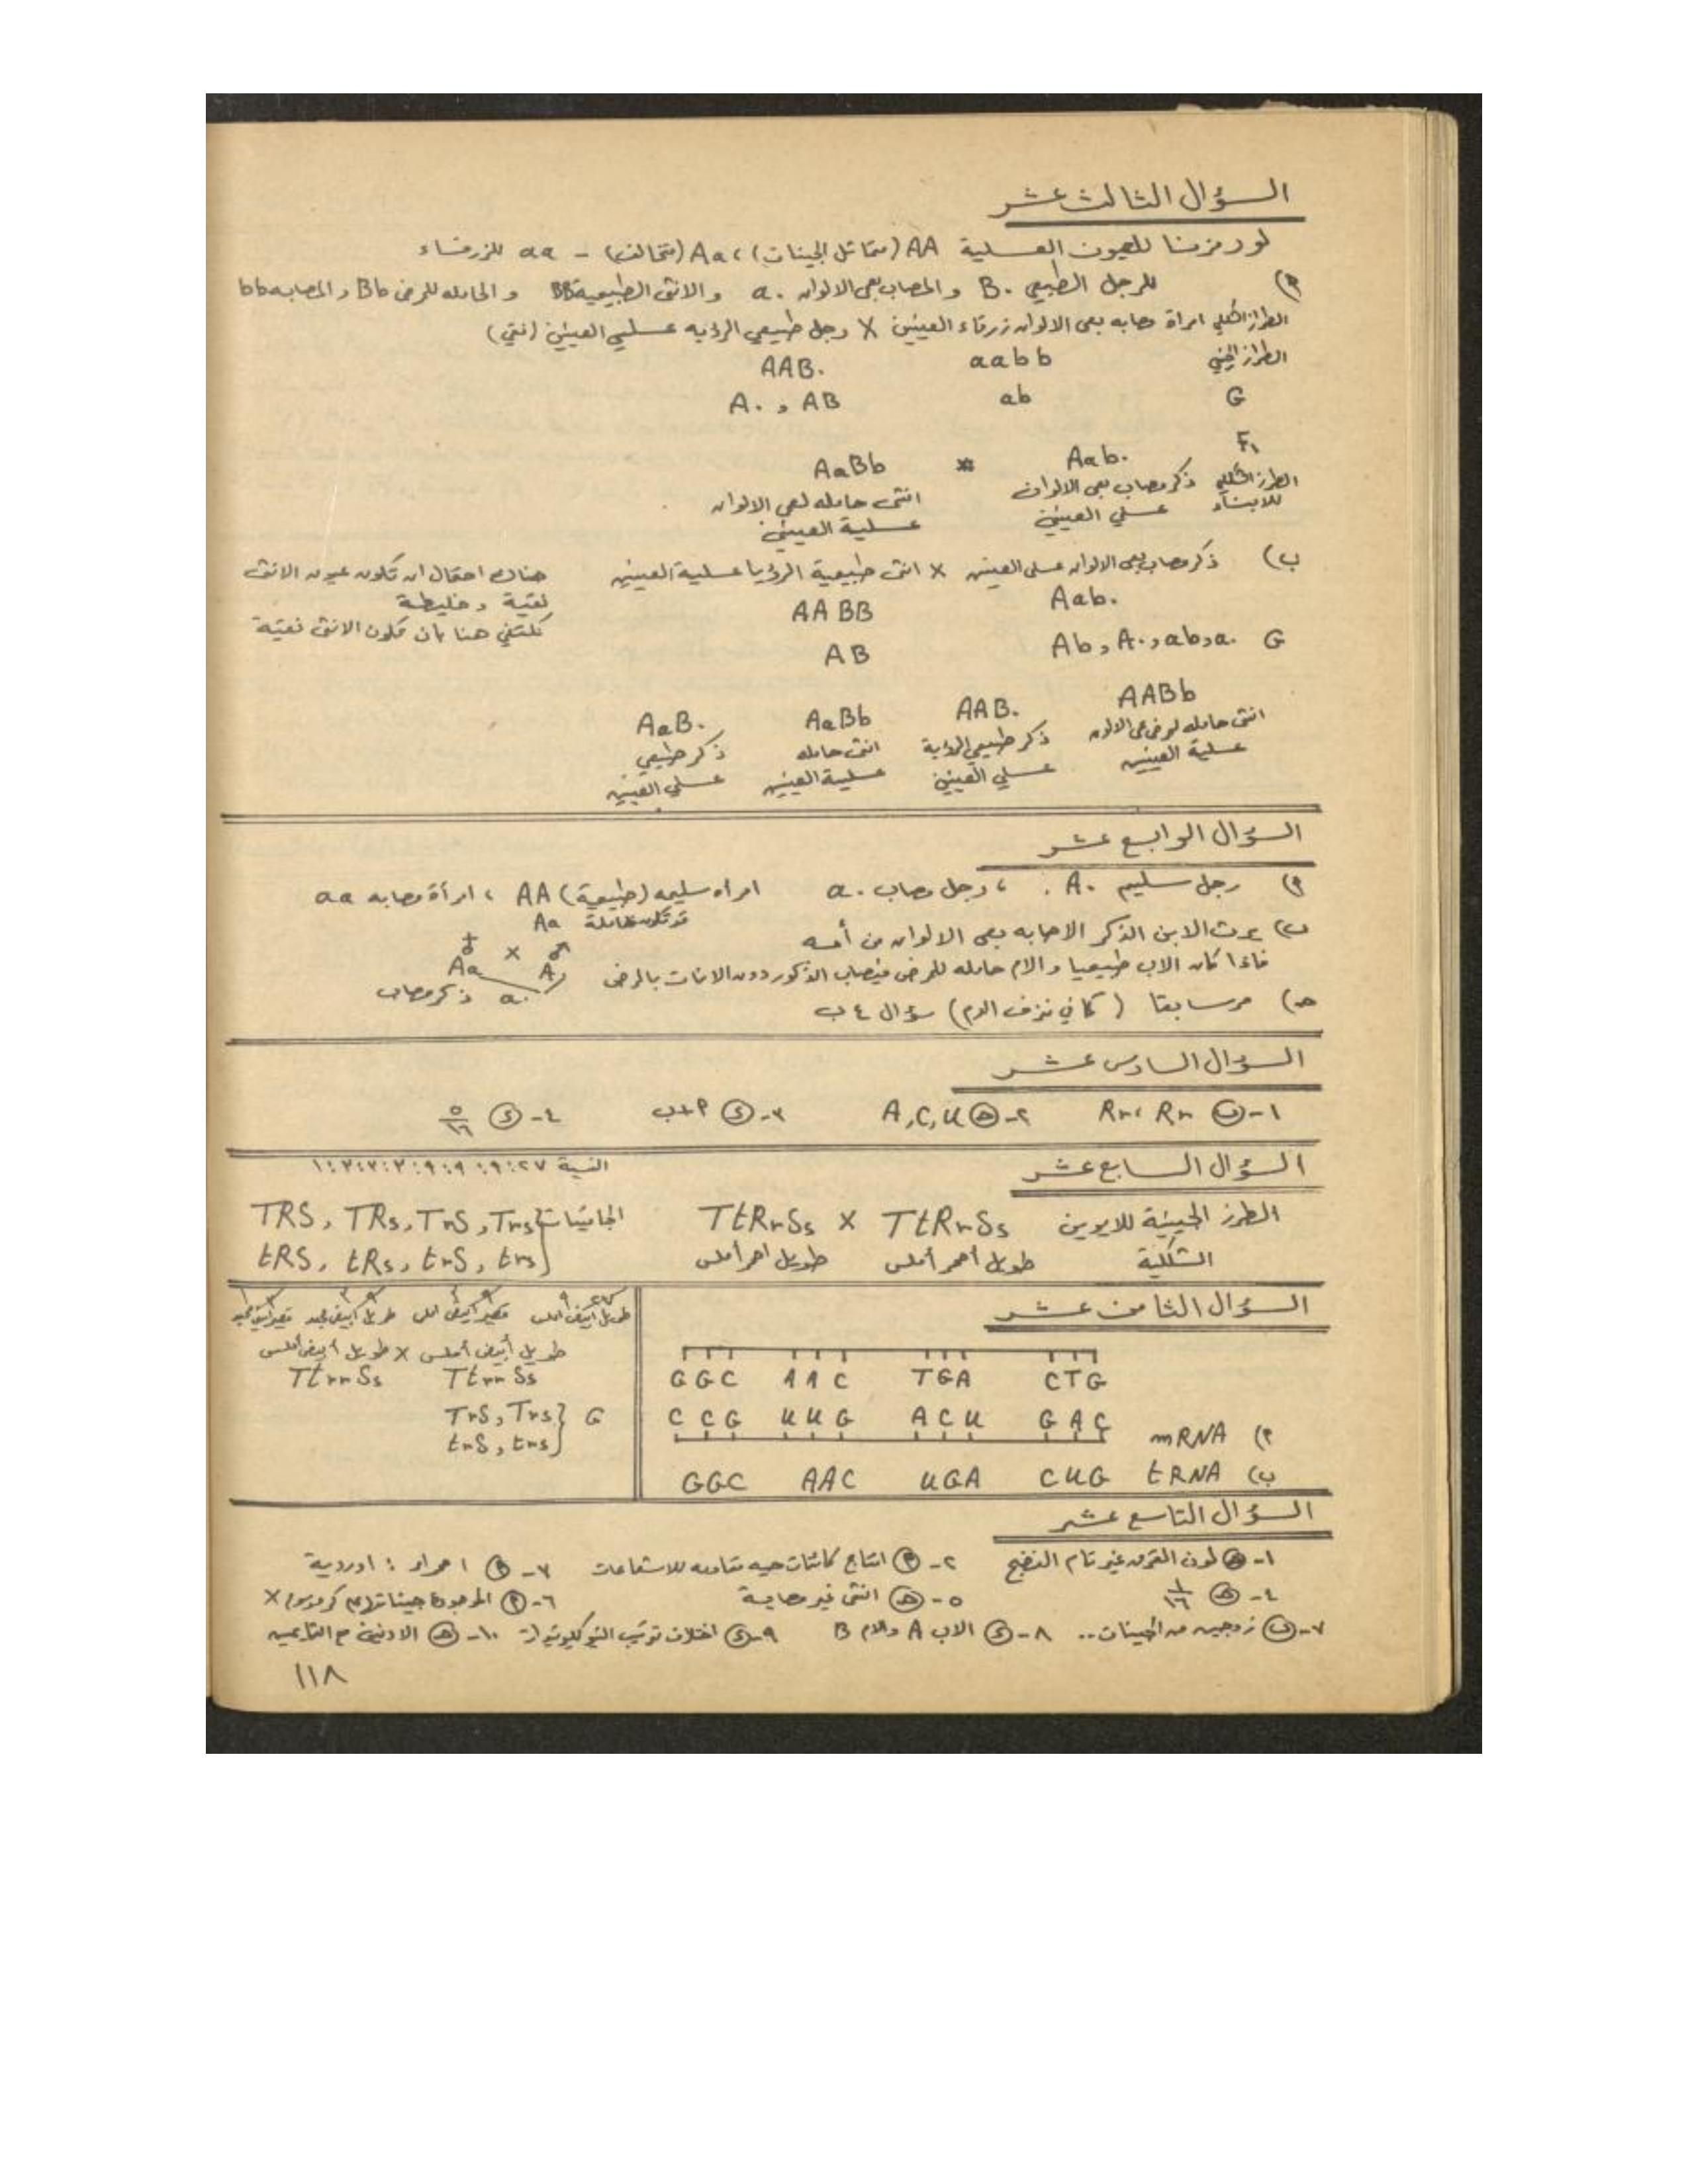 السؤال الثالث عشر
لو رمزنا للعيون العسلية AA (متماثل الجينات) ، Aa (متخالف) - aa للزرقاء
أ) للرجل الطبيعي B. والمصاب بعمى الالوان a. والانثى الطبيعية BB والحامله للمرض Bb والمصابه bb
الطراز الشكلي امرأة مصابه بعمى الالوان زرقاء العينين X رجل طبيعي الرؤيه عسلي العينين (نقي)
الطراز الجيني aabb AAB.
G ab A. , AB
F١ Aab. AaBb
الطرز الشكلي للابناء ذكر مصاب بعمى الالوان عسلي العينين
انثى حامله لعمى الالوان عسلية العينين
ب) ذكر مصاب بعمى الالوان عسلي العينين X انثى طبيعية الرؤيا عسلية العينين
هناك احتمال ان تكون عيون الانثى
نقية وخليطة
نكتفي هنا بان تكون الانثى نقية
Aab. AABB
G Ab , A. , ab , a. AB
AABb AAB. AaBb AaB.
انثى حامله لمرض عمى الالوان عسلية العينين
ذكر طبيعي الرؤية عسلي العينين
انثى حامله عسلية العينين
ذكر طبيعي عسلي العينين
السؤال الرابع عشر
أ) رجل سليم A. ، رجل مصاب a. امرأه سليمه (طبيعية) AA ، امرأة مصابه aa
قد تكون حاملة Aa
ب) يرث الابن الذكر الاصابه بعمى الالوان من أمه
فاذا كان الاب طبيعيا والام حامله للمرض فيصاب الذكور دون الاناث بالمرض
♀ X ♂
Aa A.
a. ذكر مصاب
ج) مر سابقا (كما في نزف الدم) سؤال ٤ ب
السؤال السادس عشر
١- ب Rr ، Rr ٢- ج A,C,U ٣- د أ+ب ٤- د ٥/١٦
السؤال السابع عشر
النسبة ٢٧:٩:٩:٩:٣:٣:٣:١
الطرز الجينية للابوين TtRrSs X TtRrSs
الجاميتات TRS, TRs, TrS, Trs
tRS, tRs, trS, trs
الشكلية طويل أحمر أملس طويل احمر أملس
السؤال الثامن عشر
GGC AAC TGA CTG
أ) mRNA CCG UUG ACU GAC
ب) tRNA GGC AAC UGA CUG
طويل أبيض املس قصير ابيض املس طويل ابيض مجعد قصير ابيض مجعد
طويل أبيض أملس X طويل أبيض أملس
TtrrSs TtrrSs
G TrS, Trs
trS, trs
السؤال التاسع عشر
١- ج لون القرن غير تام النضج ٢- أ انتاج كائنات حيه مقاومه للاشعاعات ٣- أ احمراء : اوردية
٤- ج ١/١٦ ٥- ج انثى غير مصابة ٦- أ الموجودة جيناتها على كروموسوم X
٧- ب زوجين من الجينات.. ٨- د الاب A والام B ٩- د اختلاف ترتيب النيوكليوتيدات ١٠- ج الادنين مع الثايمين
١١٨